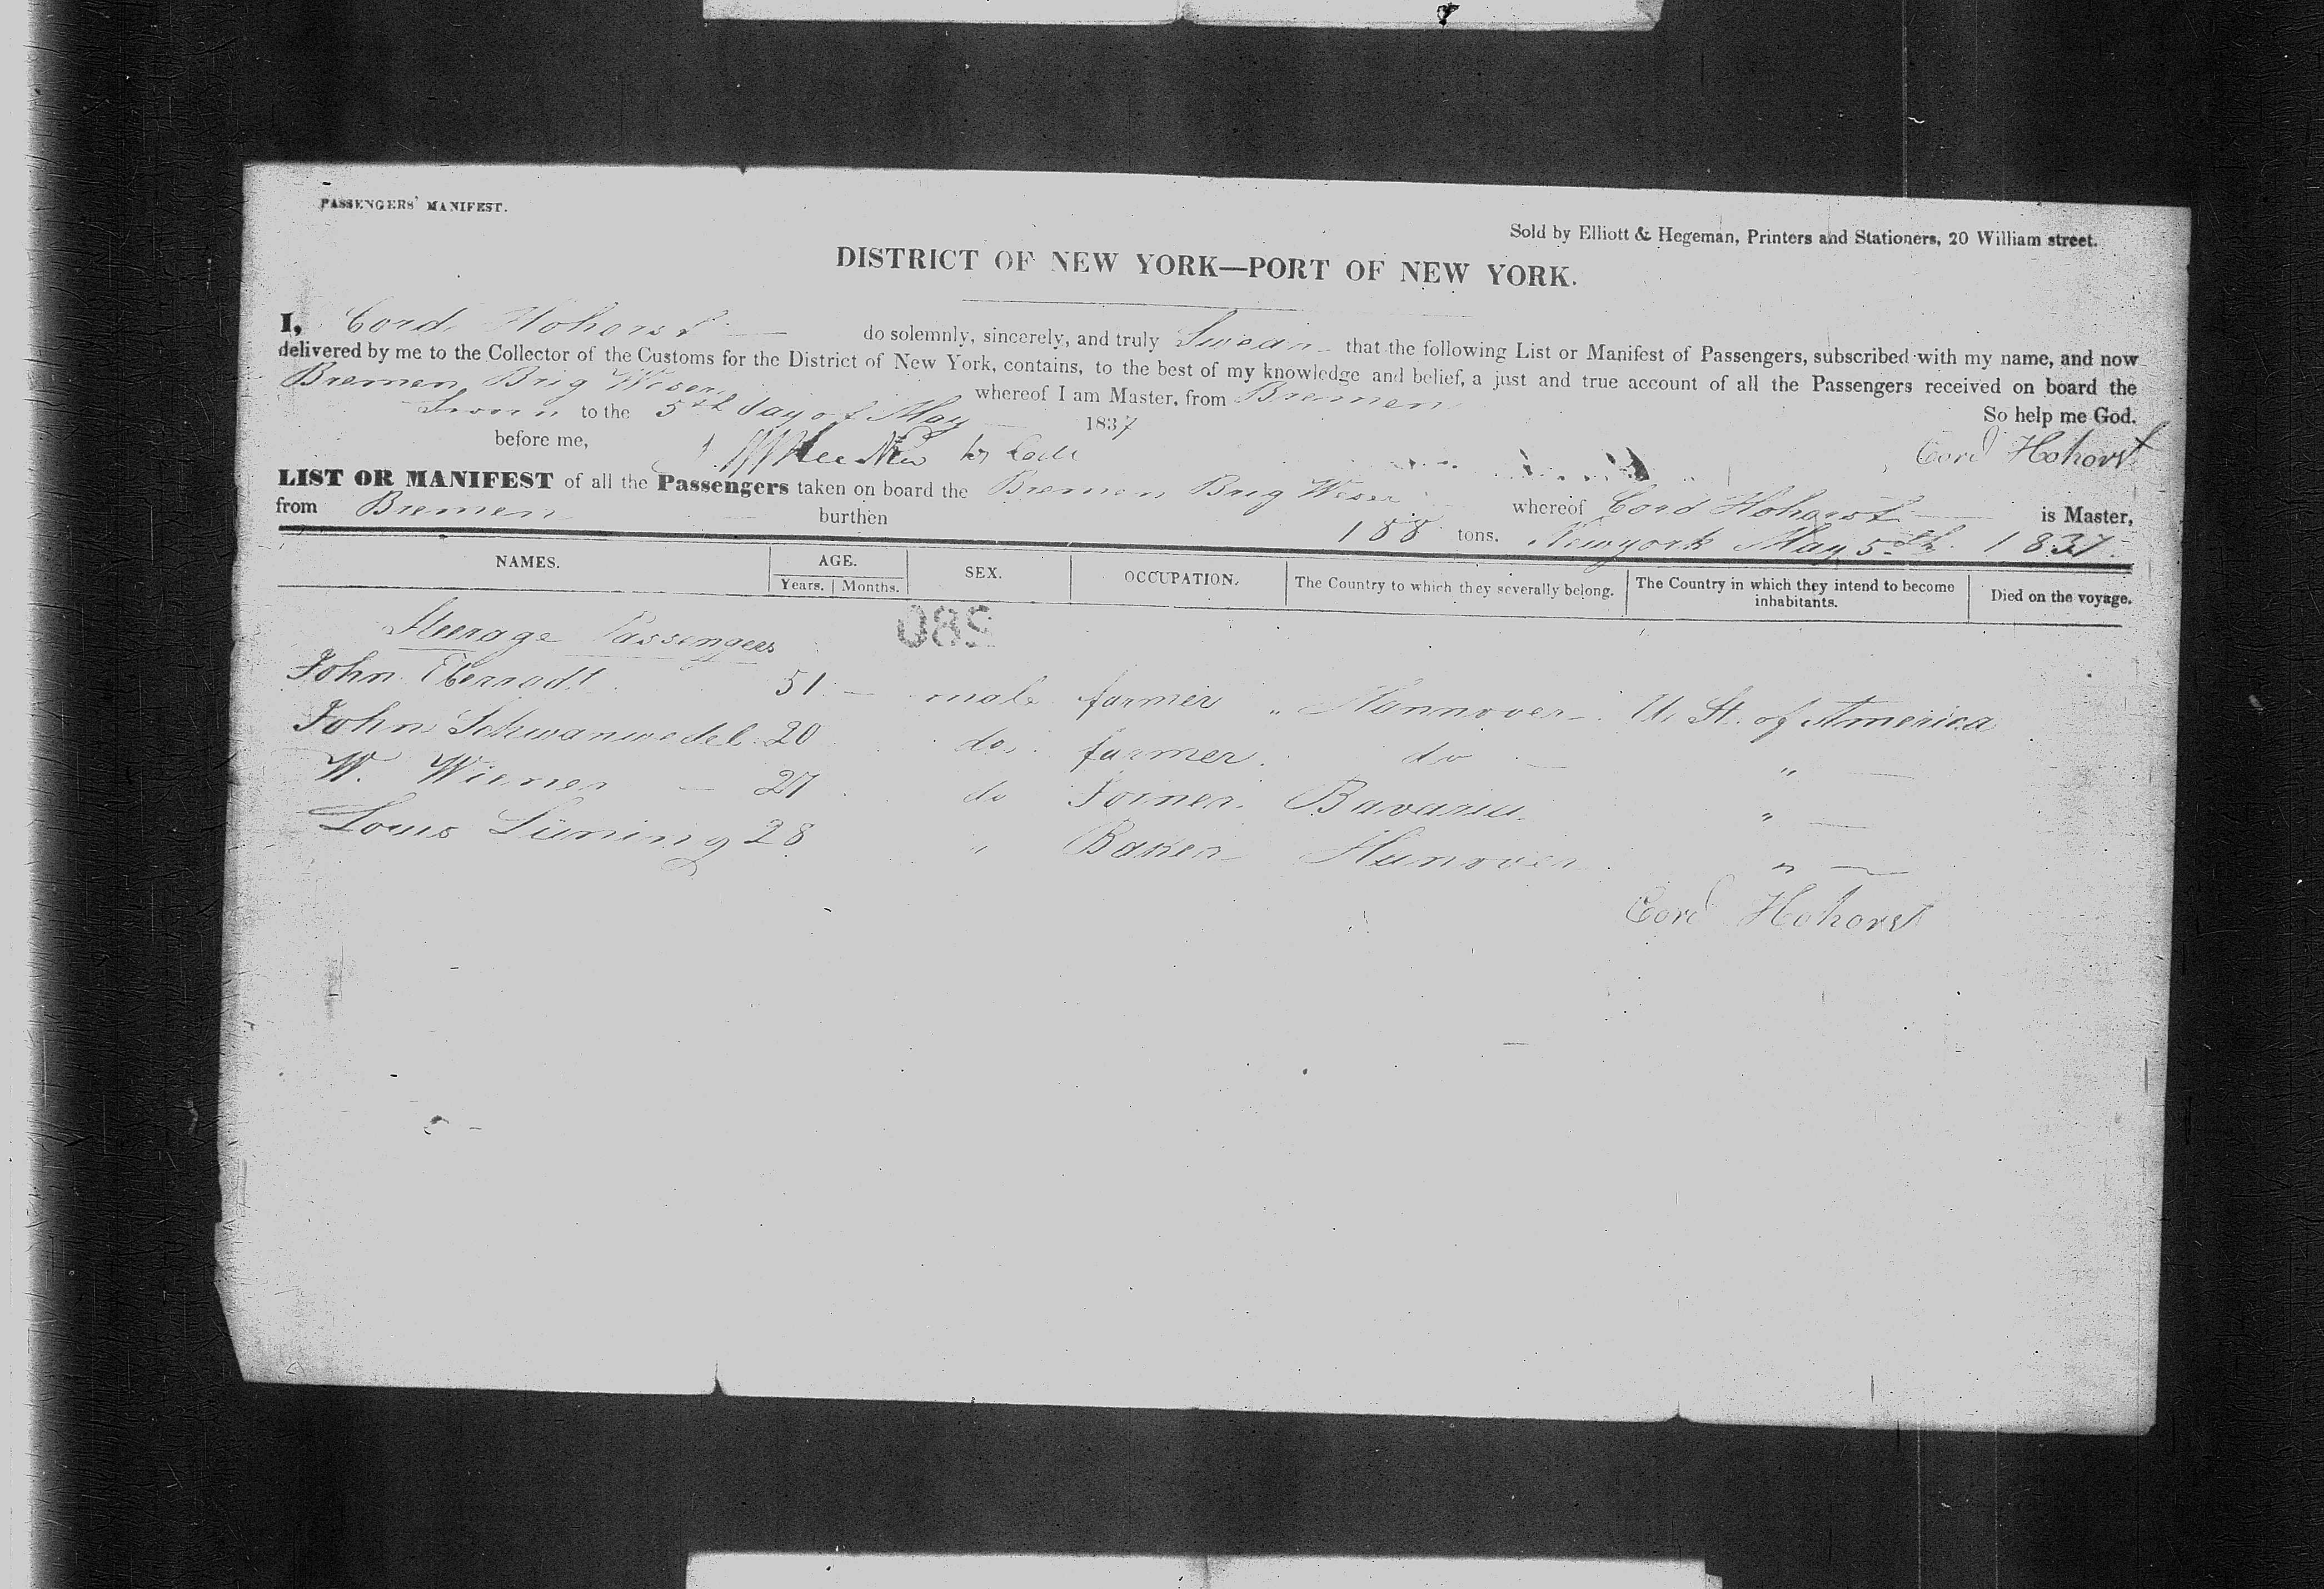 PASSENGERS' MANIFEST.
Sold by Elliott & Hegeman, Printers and Stationers, 20 William street.
DISTRICT OF NEW YORK—PORT OF NEW YORK.
I, Cord Hohorst do solemnly, sincerely, and truly Swear that the following List or Manifest of Passengers, subscribed with my name, and now
delivered by me to the Collector of the Customs for the District of New York, contains, to the best of my knowledge and belief, a just and true account of all the Passengers received on board the
Bremen Brig Weser whereof I am Master, from Bremen
So help me God.
Sworn to the 5th day of May 1837
before me,
Cord Hohorst
LIST OR MANIFEST of all the Passengers taken on board the Bremen Brig Weser whereof Cord Hohorst is Master,
from Bremen burthen 188 tons. Newyork May 5th. 1837.
NAMES. AGE. SEX. OCCUPATION. The Country to which they severally belong. The Country in which they intend to become inhabitants. Died on the voyage.
Years. Months.
089
Steerage Passengers
John Eberradt 51 — male farmer " Hannover U. St. of America
John Schwanwedel 20 do farmer do " —
W. Wiener — 27 do Joiner Bavaria " —
Louis Lüning 28 " Baker Hanover " —
Cord Hohorst